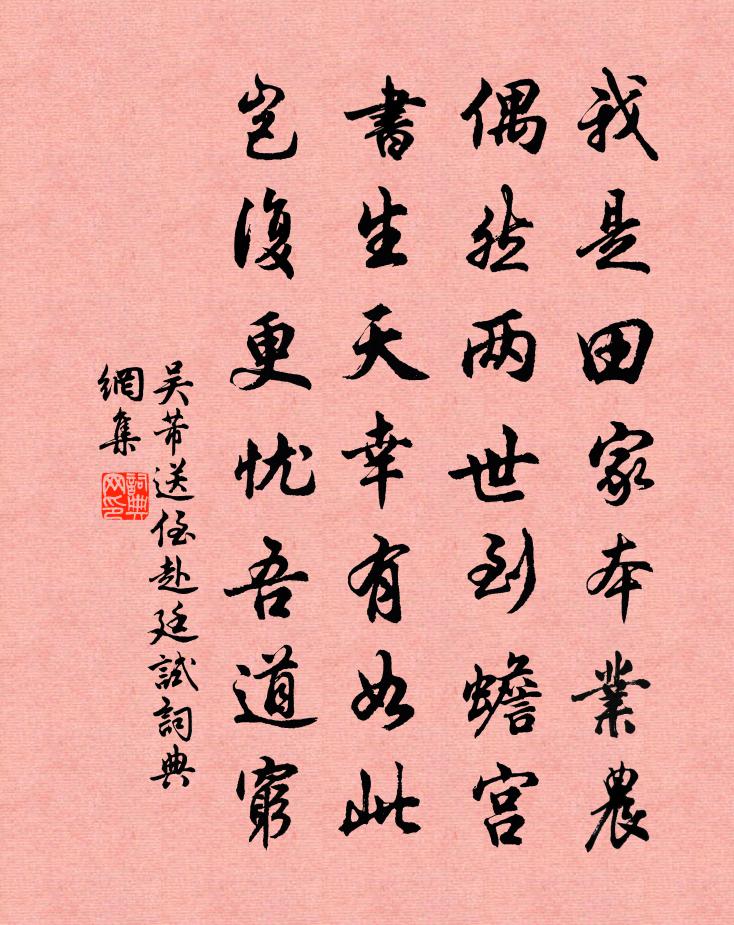 我是田家本業農
偶然两世到蟾宫
書生天幸有如此
岂復更忧吾道窮
吴芾送侄赴廷試詞典
網集
詞典網印